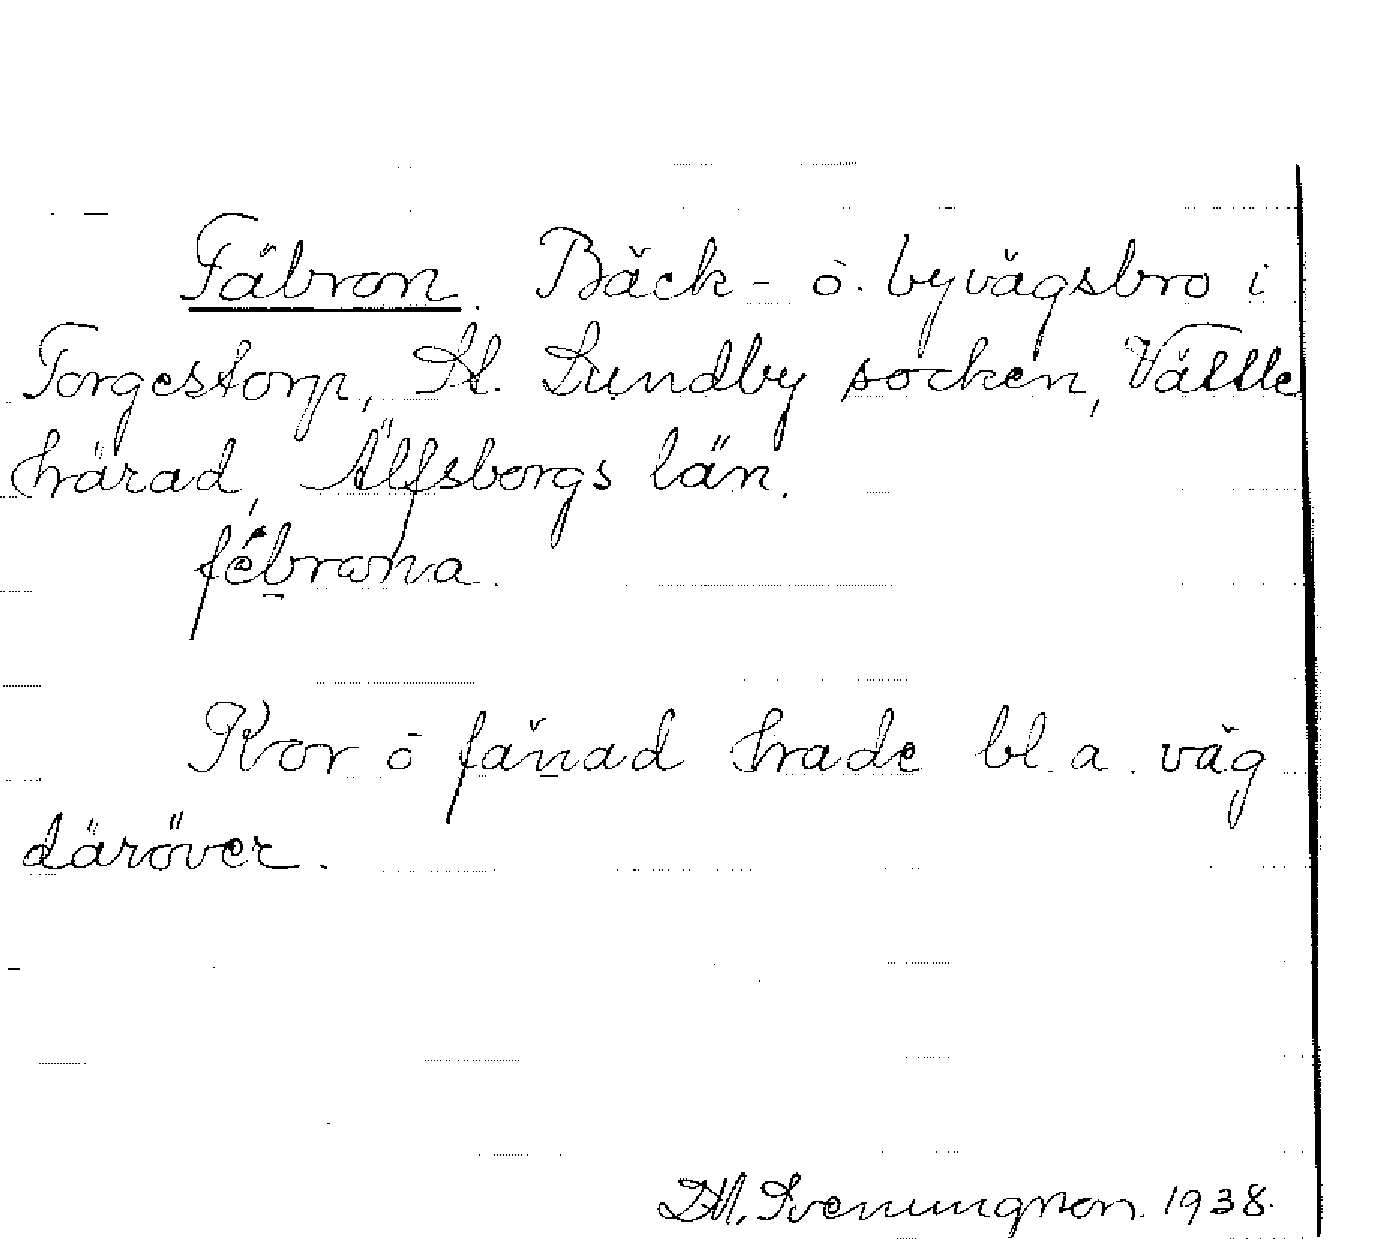 Fäbron. Bäck- o. byvägsbro i
Torgestorp, St. Lundby socken, Vättle
härad, Älfsborgs län.
fébrona.
Kor o fänad hade bl. a. väg
däröver.
Svenungson. 1938.